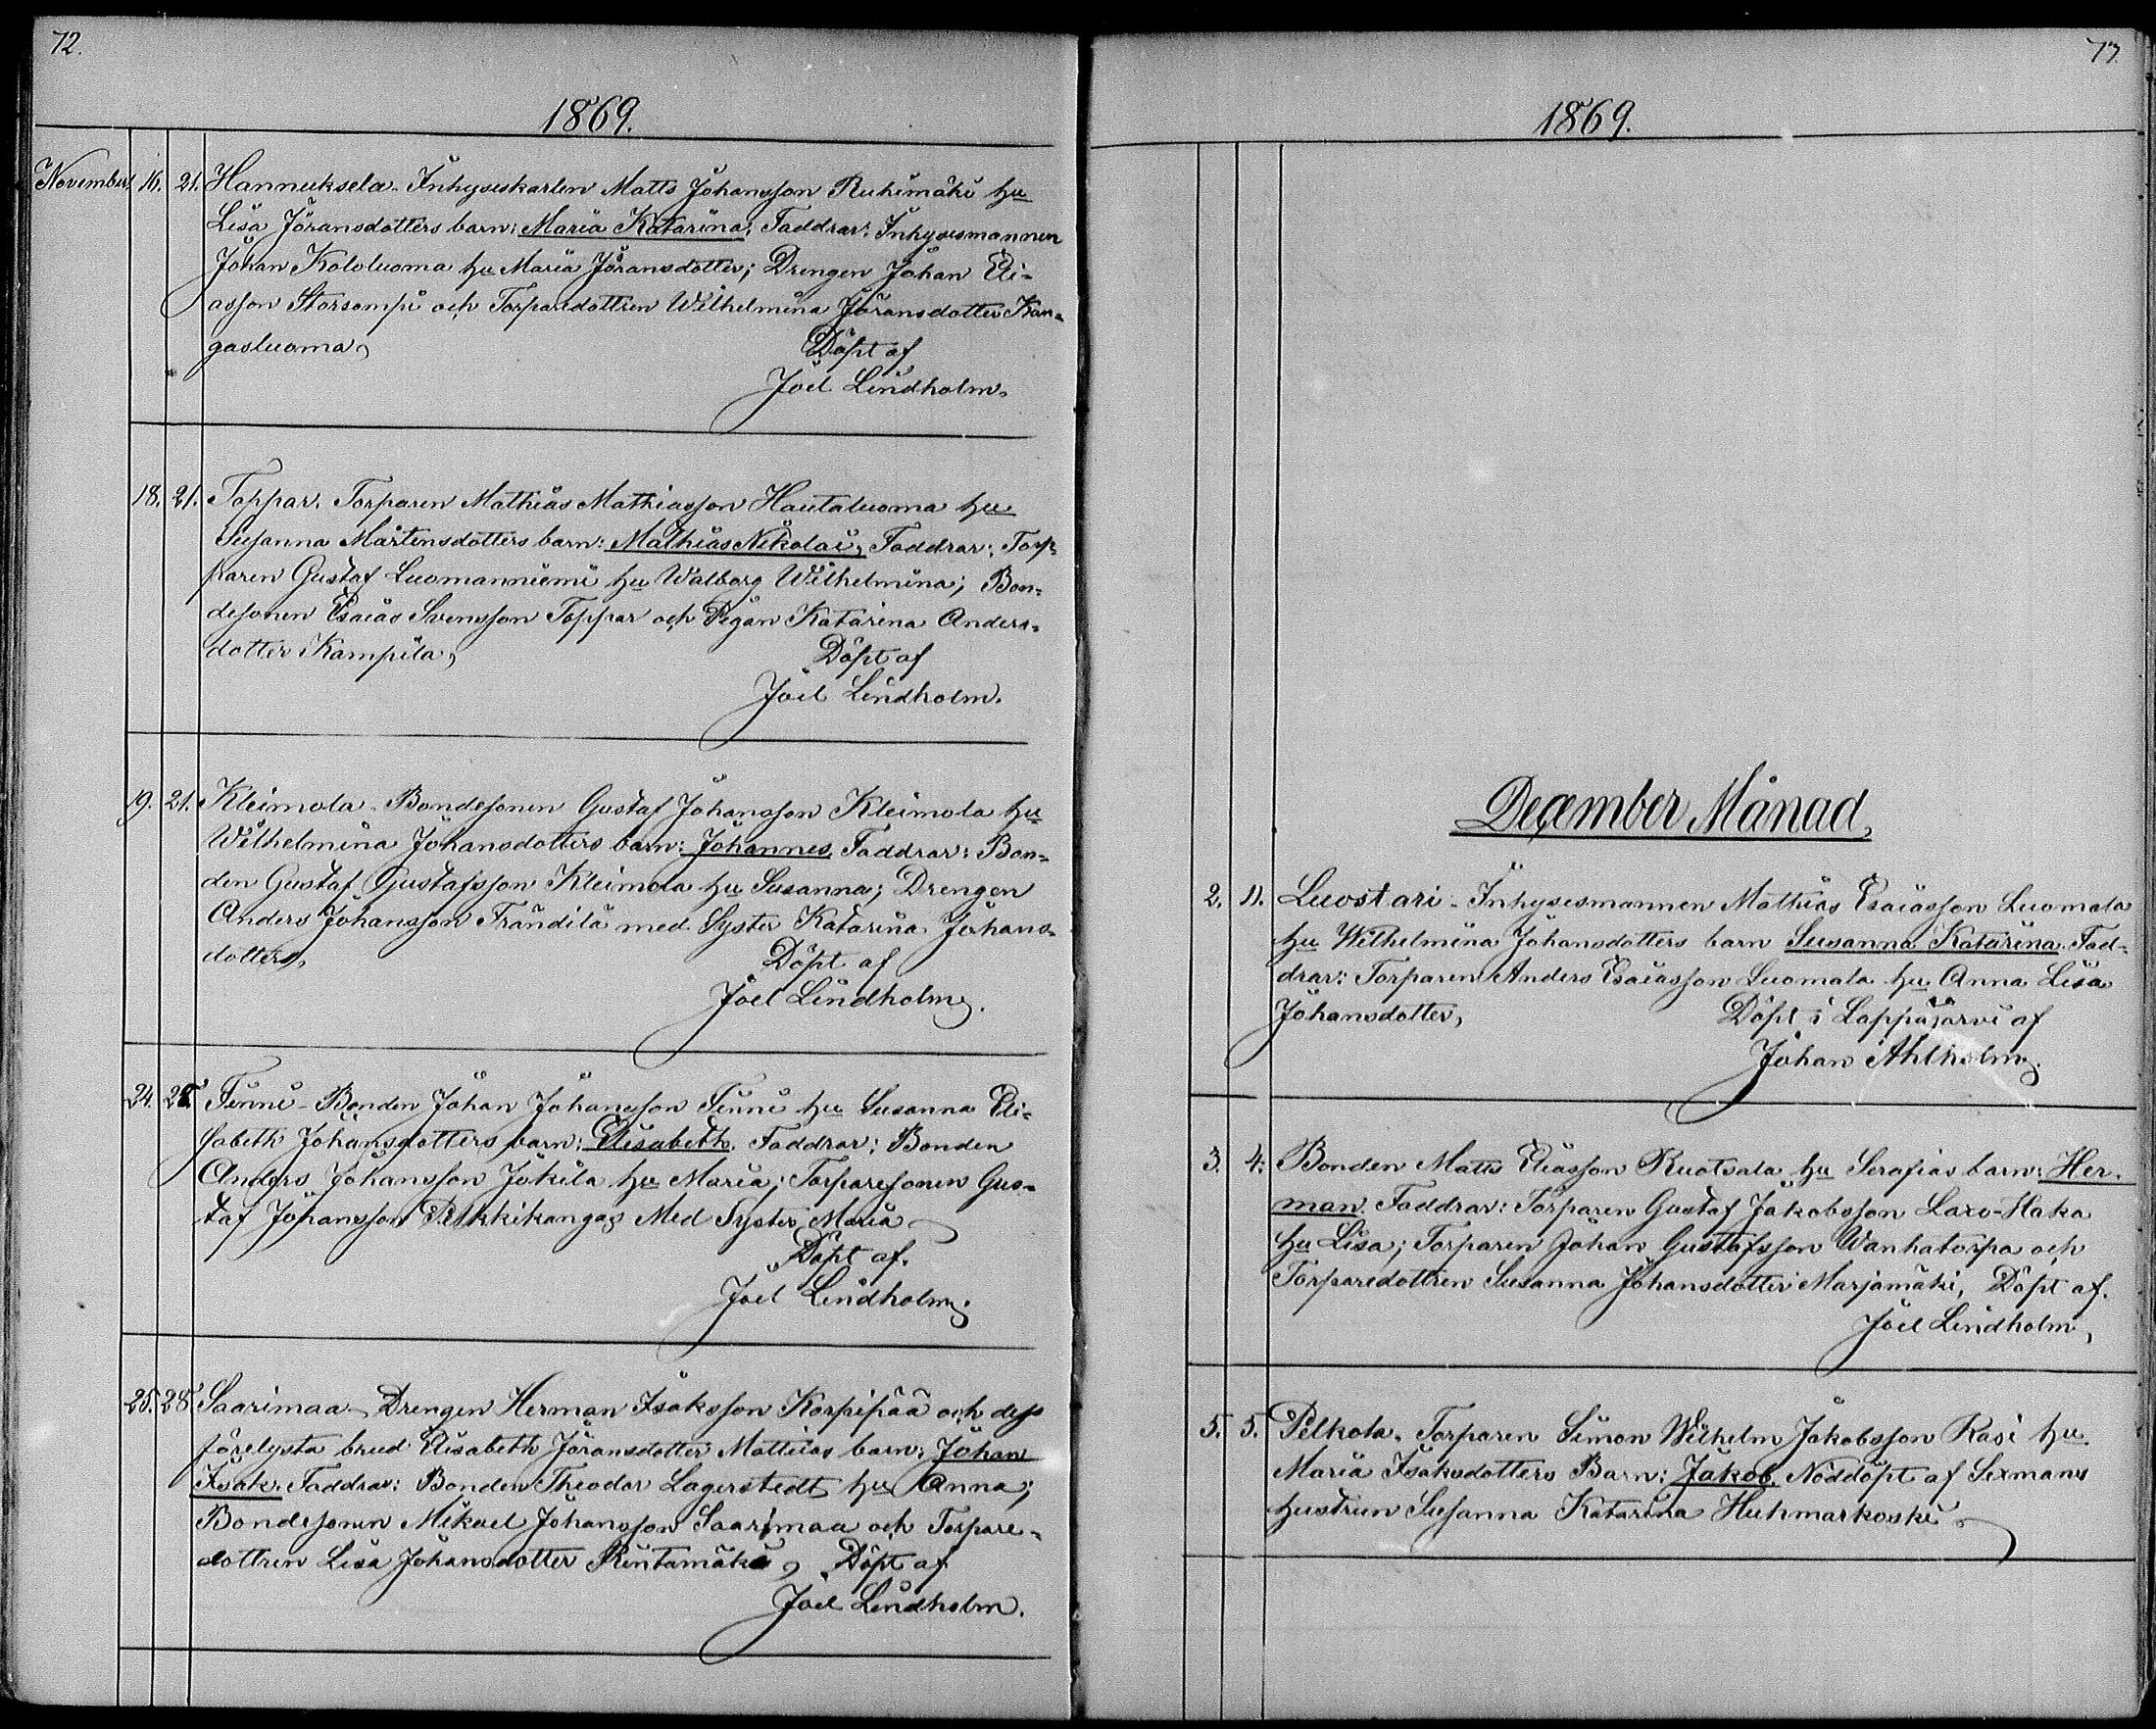 72.
1869.
November 16. 21. Hannuksela - Inhyseskarlen Matts Johansson Ruhimäki hu
Lisa Jöransdotters barn: Maria Katarina; Faddrar: Inhysesmannen
Johan Kololuoma hu Maria Jöransdotter; Drengen Johan Eli-
asson Storsompi och Torparedottren Wilhelmina Jöransdotter Kan-
gasluoma,
Döpt af
Joel Lindholm.
18. 21. Toppar. Torparen Mathias Mathiasson Hautaluoma hu
Susanna Mårtensdotters barn: Mathias Nikolai, Faddrar: Torp-
paren Gustaf Luomanniemi hu Walborg Wilhelmina; Bon-
desonen Esaias Svensson Toppar och Pigan Katarina Anders-
dotter Kampila,
Döpt af
Joel Lindholm.
19. 21. Kleimola - Bondesonen Gustaf Johansson Kleimola hu
Wilhelmina Johansdotters barn: Johannes. Faddrar: Bon-
den Gustaf Gustafsson Kleimola hu Susanna; Drengen
Anders Johansson Frändilä med Syster Katarina Johans-
dotter,
Döpt af
Joel Lindholm.
24. 28. Finni - Bonden Johan Johansson Finni hu Susanna Eli-
sabeth Johansdotters barn: Elisabeth. Faddrar: Bonden
Anders Johansson Jokila hu Maria; Torparesonen Gus-
taf Johansson Pelkkikangas Med Syster Maria
Döpt af.
Joel Lindholm.
25. 28. Saarimaa - Drengen Herman Isaksson Korpipää och dess
förelysta brud Elisabeth Jöransdotter Mattilas barn: Johan
Isak. Faddrar: Bonden Theodor Lagerstedt hu Anna;
Bondesonen Mikael Johansson Saarimaa och Torpare-
dottren Lisa Johansdotter Rintamäki, Döpt af
Joel Lindholm.
73.
1869.
December Månad,
2. 11. Luostari - Inhysesmannen Mathias Esaiasson Luomala
hu Wilhelmina Johansdotters barn Susanna Katarina. Fad-
drar: Torparen Anders Esaiasson Luomala hu Anna Lisa
Johansdotter,
Döpt i Lappajärvi af
Johan Ahlholm.
3. 4. Bonden Matts Eliasson Ruotsala hu Serafias barn: Her-
man. Faddrar: Torparen Gustaf Jakobsson Laxo-Haka
hu Lisa; Torparen Johan Gustafsson Wanhatorpa och
Torparedottren Susanna Johansdotter Marjamäki, Döpt af.
Joel Lindholm,
5. 5. Pelkola. Torparen Simon Wilhelm Jakobsson Kasi hu
Maria Isaksdotters Barn: Jakob. Nöddöpt af Sexmans
hustrun Susanna Katarina Huhmarkoski.